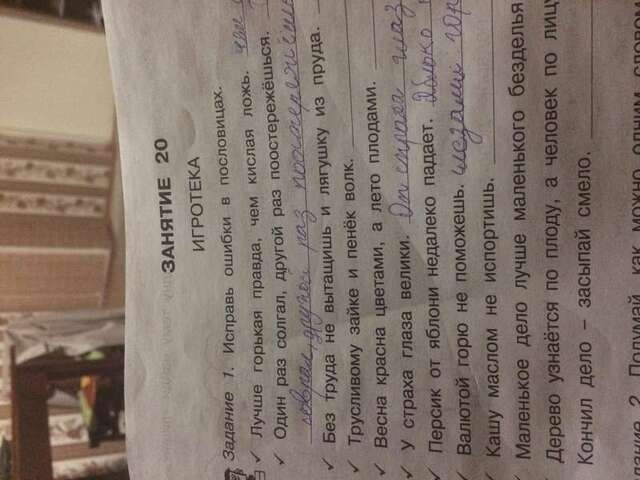 ЗАНЯТИЕ 20
ИГРОТЕКА
Задание 1. Исправь ошибки в пословицах.
✓ Лучше горькая правда, чем кислая ложь. чем
✓ Один раз солгал, другой раз поостережёшься.
соврал, другой раз
✓ Без труда не вытащишь и лягушку из пруда.
✓ Трусливому зайке и пенёк волк.
✓ Весна красна цветами, а лето плодами.
✓ У страха глаза велики. От страха глаз
✓ Персик от яблони недалеко падает. Яблоко
✓ Валютой горю не поможешь. слезами гор
✓ Кашу маслом не испортишь.
Маленькое дело лучше маленького безделья
Дерево узнаётся по плоду, а человек по лицу
Кончил дело – засыпай смело.
дание 2. Подумай, как можно одним словом